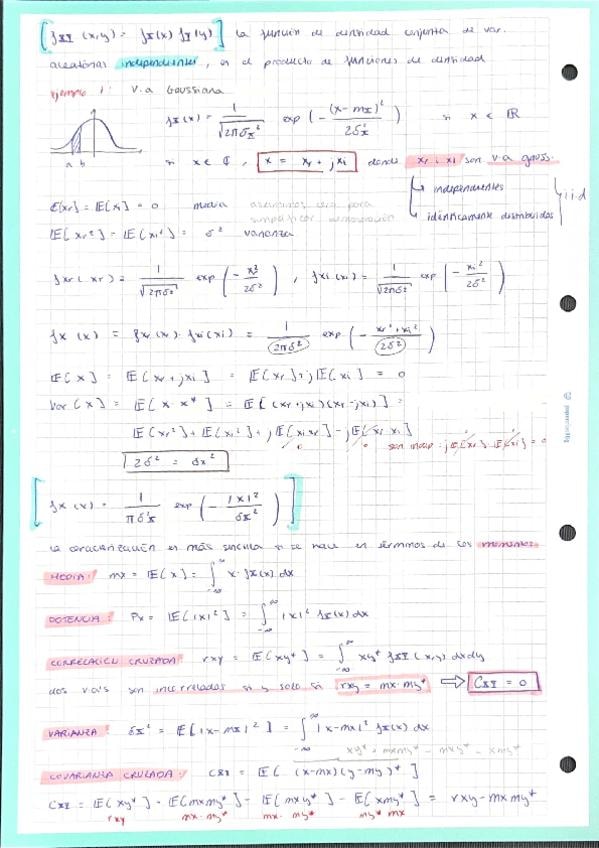 [ fXY (x,y) = fX(x) fY(y) ] la función de densidad conjunta de var.
aleatorias independientes, es el producto de funciones de densidad
ejemplo 1: v.a Gaussiana
fX(x) = 1/√(2πσx²) exp ( - (x-mx)²/2σx² ) si x ∈ ℝ
a b
si x ∈ ℂ, x = xr + jxi donde xr i xi son v.a gauss.
independientes
idénticamente distribuidas
i.i.d
E[xr] = E[xi] = 0 media asumimos cero para
simplificar demostración
E[xr²] = E[xi²] = σ² varianza
fxr(xr) = 1/√(2πσ²) exp ( - xr²/2σ² ) , fxi(xi) = 1/√(2πσ²) exp ( - xi²/2σ² )
fx (x) = fxr(xr) · fxi(xi) = 1/2πσ² exp ( - xr²+xi²/2σ² )
E[x] = E[xr + jxi] = E[xr] + jE[xi] = 0
Var[x] = E[x · x*] = E[(xr+jxi)(xr-jxi)] =
E[xr²] + E[xi²] + jE[xi xr] - jE[xr xi]
son indep · jE[xr] · E[xi] = 0
2σ² = σx²
[ fx (x) = 1/πσx² exp ( - |x|²/σx² ) ]
la caracterización es más sencilla si se hace en términos de los momentos.
MEDIA: mx = E[x] = ∫-∞^∞ x · fX(x) dx
POTENCIA: Px = E[|x|²] = ∫-∞^∞ |x|² fX(x) dx
CORRELACIÓN CRUZADA: rxy = E[xy*] = ∫-∞^∞ xy* fXY (x,y) dxdy
dos v.a's son incorreladas si y solo si rxy = mx · my* ⇒ CXY = 0
VARIANZA: σx² = E[|x-mx|²] = ∫-∞^∞ |x-mx|² fX(x) dx
xy* + mxmy* - mxy* - xmy*
COVARIANZA CRUZADA: CXY = E[ (x-mx)(y-my)* ]
CXY = E[xy*] + E[mxmy*] - E[mxy*] - E[xmy*] = rxy - mxmy*
rxy mx · my* mx · my* my* mx